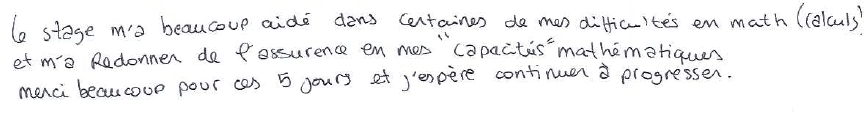 le stage m'a beaucoup aidé dans certaines de mes difficultés en math (calculs)
et m'a Redonner de l'assurence en mes "capacités" mathématiques
merci beaucoup pour ces 5 jours et j'espère continuer à progresser.